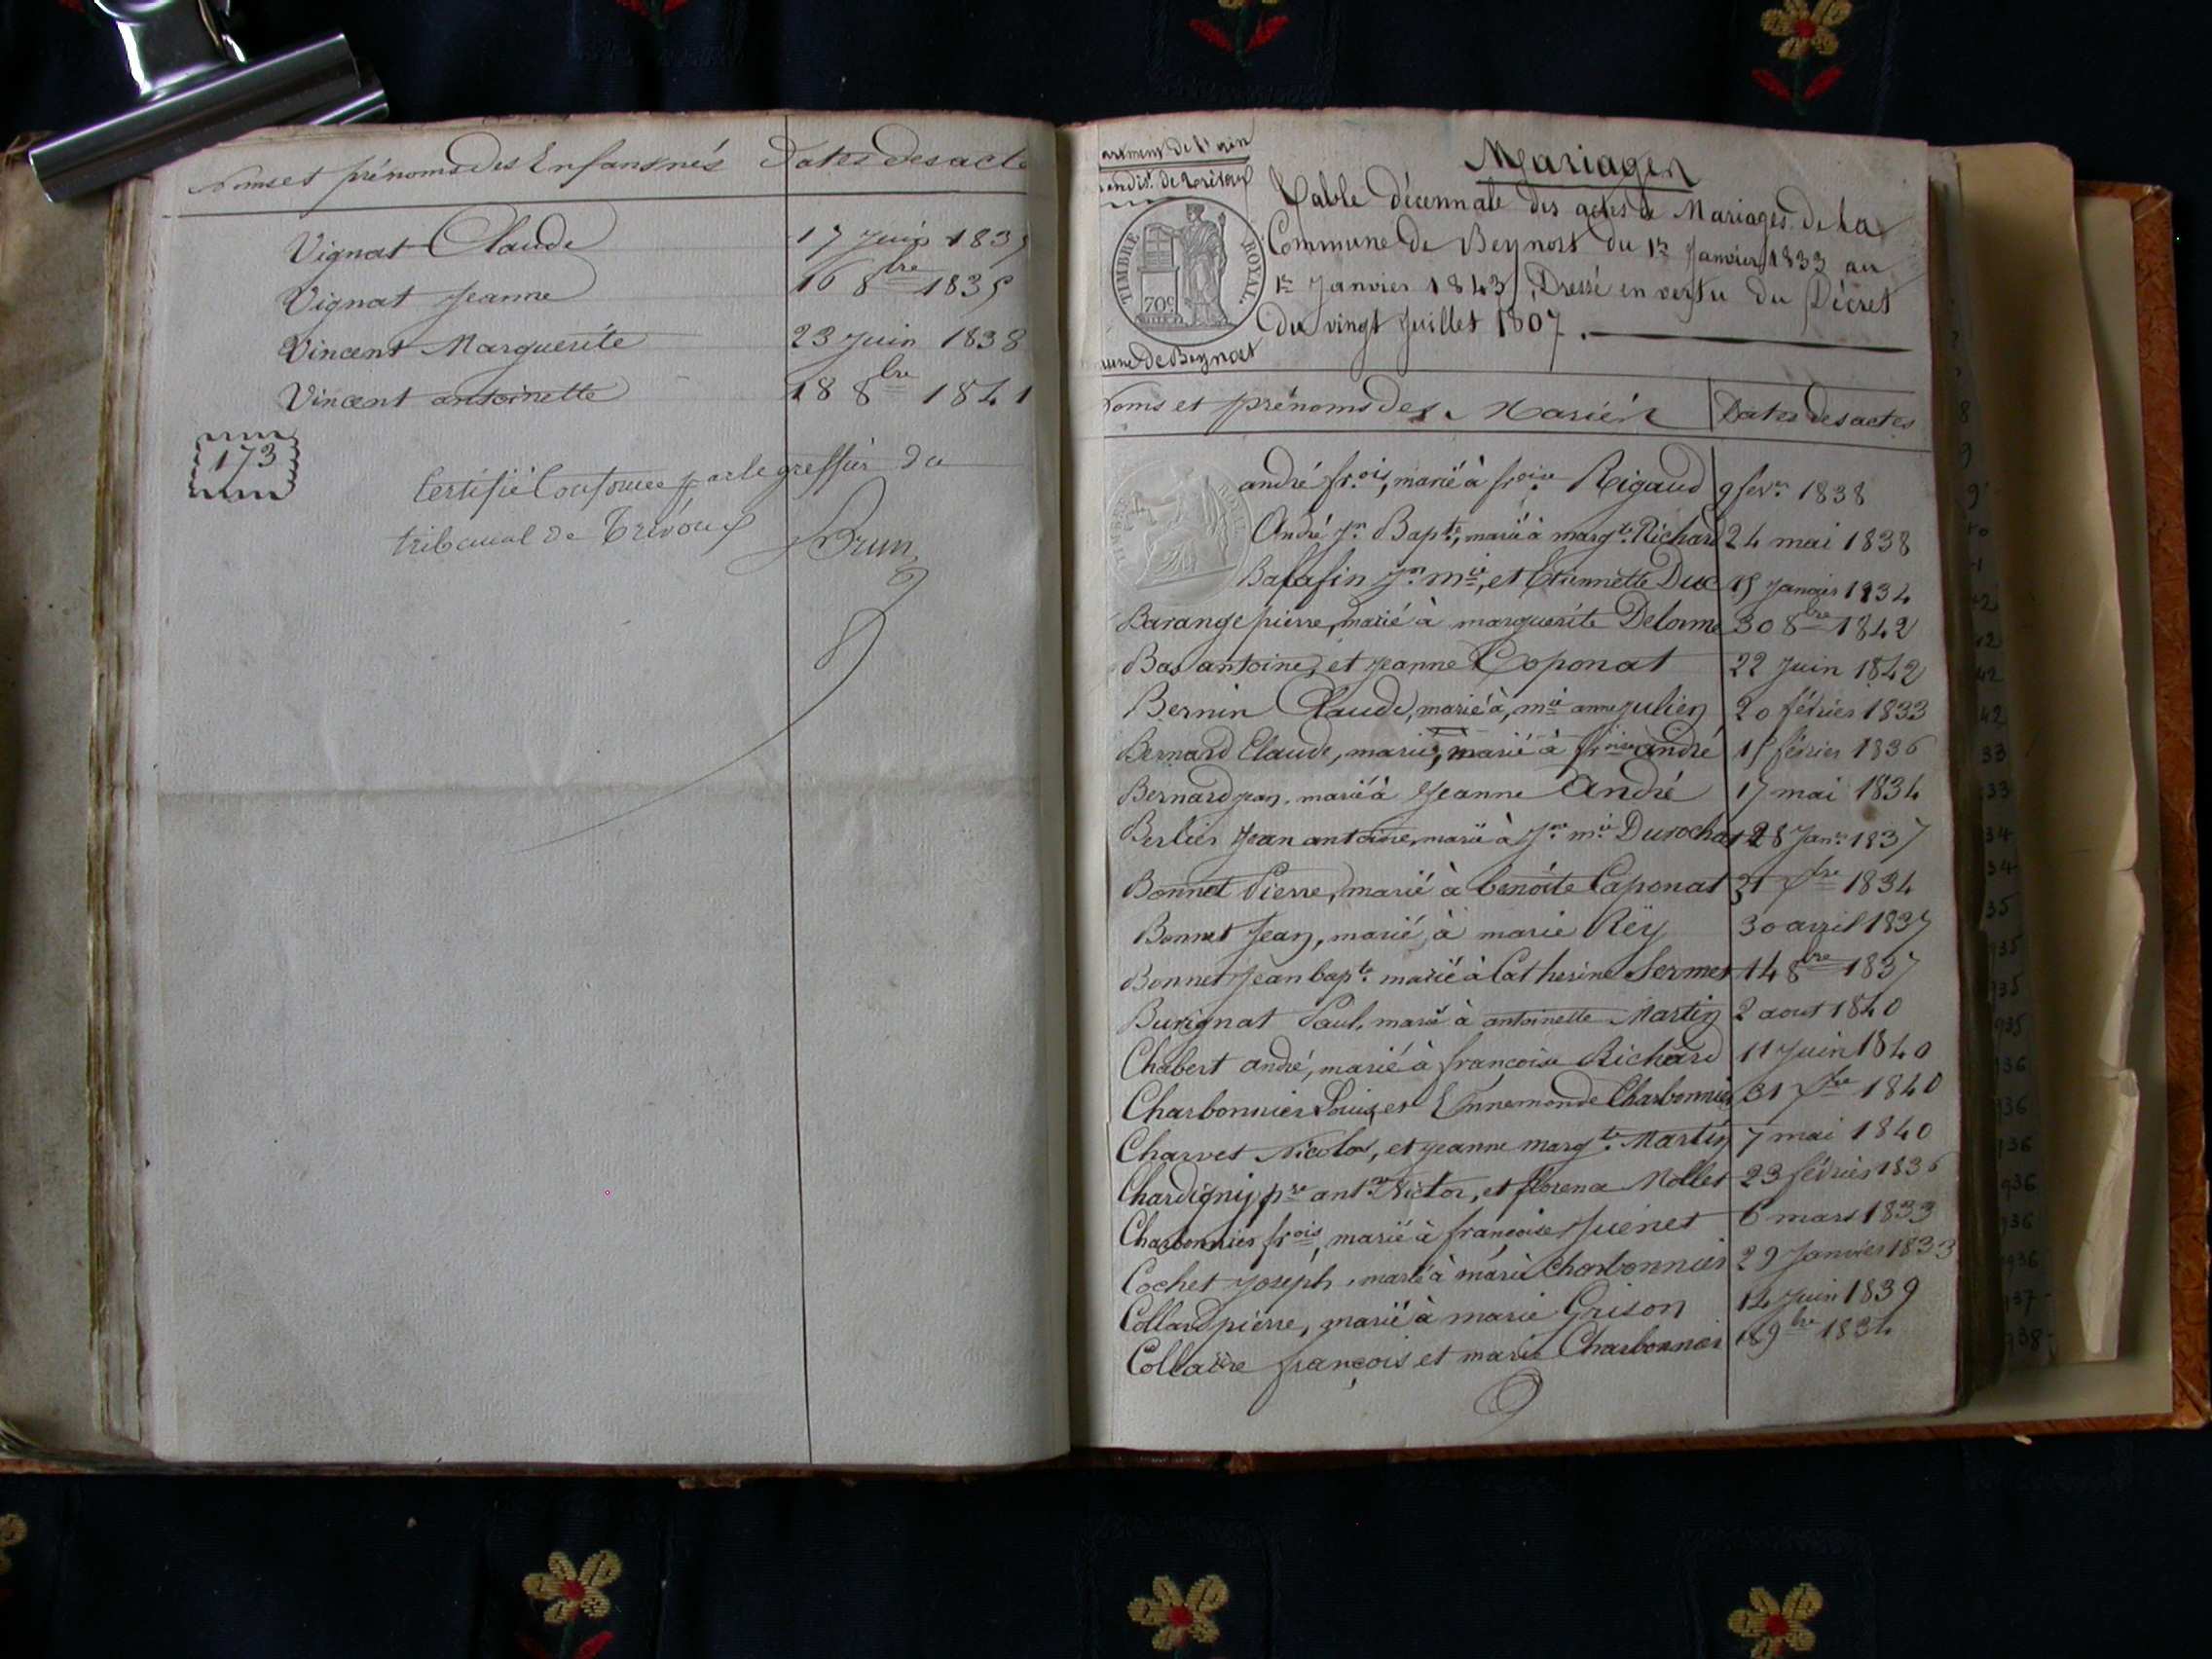 Noms et prénoms des Enfans nés Dates des acte
Vignat Claude 17 Juin 1835
Vignat Jeanne 16 8bre 1835
Vincent Marguerite 23 Juin 1838
Vincent antoinette 18 8bre 1841
173
Certifié Conforme par le greffier du
tribunal de Trévoux
Brun
artement de l'ain
ondist. de Trévoux
Mariages
Table décennale des actes de Mariages de la
Commune de Beynost du 1er Janvier 1833 au
1er Janvier 1843, Dressé en vertu du Décret
du vingt Juillet 1807.
TIMBRE ROYAL.
70c
mune de Beynost
Noms et prénoms des Mariés Dates des actes
andré frois, marié à froise Rigaud 9 fevr 1838
André Jn Bapte, marié à margte Richard 24 mai 1838
Jn mie, et Etiennette Duc 15 Janvier 1834
Barange pierre, marié à marguerite Delorme 30 8bre 1842
Bas antoine, et Jeanne Coponat 22 Juin 1842
Bernin Claude, marié à, mie anne Julien 20 février 1833
Bernard Claude, marié, marié à froise andré 15 février 1836
Bernard Jean, marié à Jeanne André 17 mai 1834
Berlier Jean antoine, marié à Jne mie Durochat 28 Janr 1837
Bonnet Pierre, marié à benoite Caponat 31 Xbre 1834
Bonnet Jean, marié, à marie Rëy 30 avril 1837
Bonnet Jean bapte marié à Catherine Sermet 14 8bre 1837
Burignat Paul, marié à antoinette Martin 2 aout 1840
Chabert andré, marié à françoise Richard 11 Juin 1840
Charbonnier Louis, et Ennemonde Charbonnier 31 Xbre 1840
Charvet Nicolas, et Jeanne margte Martin 7 mai 1840
Chardigny pre antne Victor, et florence Mollet 23 février 1836
Charbonnier frois, marié à françoise Juenet 6 mars 1833
Cochet Joseph, marié à marie Charbonnier 29 Janvier 1833
Collard pierre, marié à marie Grison 14 Juin 1839
françois et marie Charbonnier 18 9bre 1834